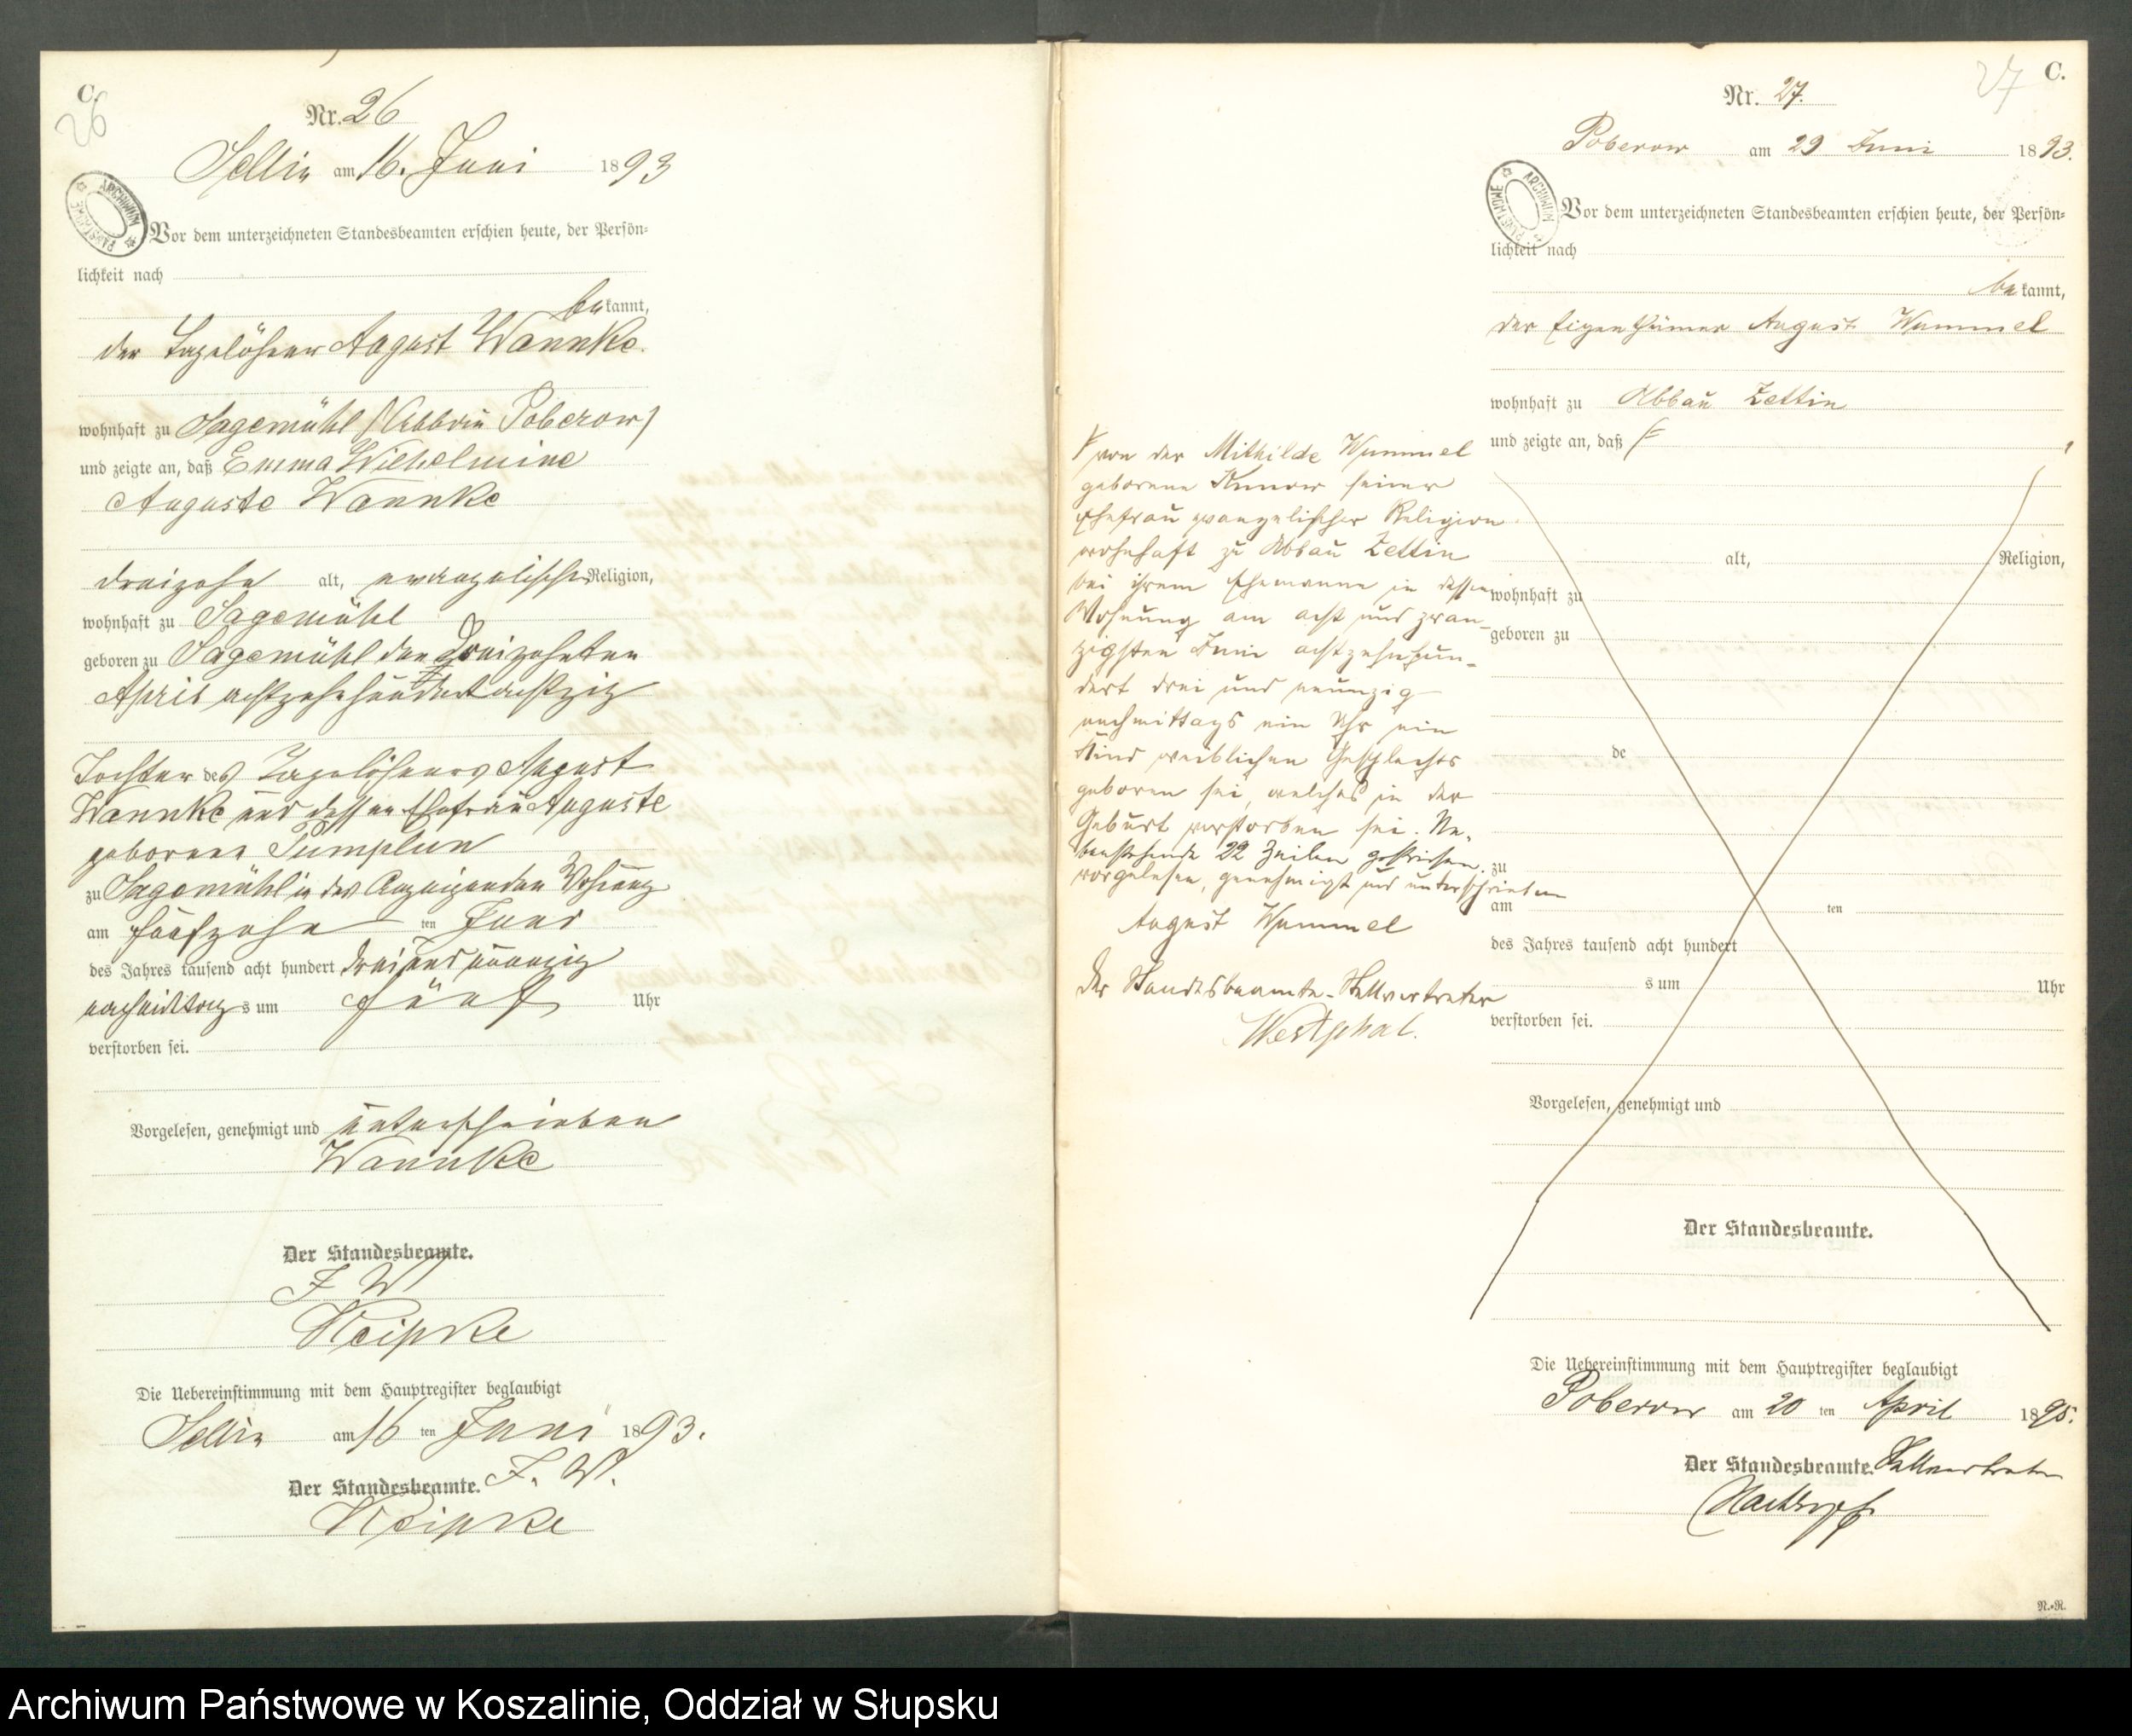 C.
26
Nr. 26
Sellin am 16. Juni 1893
ARCHIWUM PAŃSTWOWE
Vor dem unterzeichneten Standesbeamten erschien heute, der Persön-
lichkeit nach
bekannt,
der Tagelöhner August Wannke.
wohnhaft zu Sagemühl (Abbau Poberow)
und zeigte an, daß Emma Wilhelmine
Auguste Wannke
dreizehn alt, evangelischer Religion,
wohnhaft zu Sagemühl
geboren zu Sagemühl den dreizehnten
April achtzehnhundert achtzig
Tochter des Tagelöhners August
Wannke und dessen Ehefrau Auguste
geborenen
zu Sagemühl in des Anzeigenden Wohnung
am fünfzehn ten Juni
des Jahres tausend acht hundert drei und neunzig
nachmittags um fünf Uhr
verstorben sei.
Vorgelesen, genehmigt und unterschrieben
Wannke
Der Standesbeamte.
Die Uebereinstimmung mit dem Hauptregister beglaubigt
Sellin am 16 ten Juni 1893.
Der Standesbeamte.
27 C.
Nr. 27.
Poberow am 29 Juni 1893.
ARCHIWUM PAŃSTWOWE
Vor dem unterzeichneten Standesbeamten erschien heute, der Persön-
lichkeit nach
bekannt,
der Eigenthümer August Wummel
wohnhaft zu Abbau Zettin
und zeigte an, daß
von der Mithilde Wummel
geborene Kunow seiner
Ehefrau evangelischer Religion
wohnhaft zu Abbau Zettin
bei ihrem Ehemanne in dessen
Wohnung am acht und zwan-
zigsten Juni achtzehnhun-
dert drei und neunzig
nachmittags ein Uhr ein
Kind weiblichen Geschlechts
geboren sei, welches in der
Geburt verstorben sei. Ne-
benstehende 22 Zeilen gestrichen.
vorgelesen, genehmigt und unterschrieben
August Wummel
Der Standesbeamte-Stellvertreter
Westphal.
alt, Religion,
wohnhaft zu
geboren zu
de
zu
am ten
des Jahres tausend acht hundert
s um Uhr
verstorben sei.
Vorgelesen, genehmigt und
Der Standesbeamte.
Die Uebereinstimmung mit dem Hauptregister beglaubigt
Poberow am 20 ten April 1895.
Der Standesbeamte Stellvertreter
N.-R.
Archiwum Państwowe w Koszalinie, Oddział w Słupsku